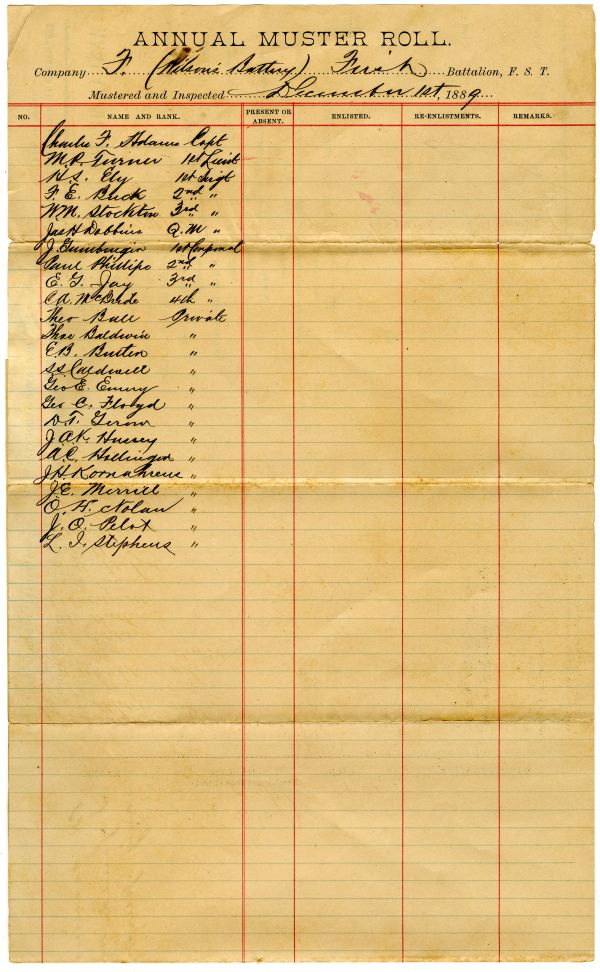 ANNUAL MUSTER ROLL.
Company F. (Wilson's Battery) First Battalion, F. S. T.
Mustered and Inspected December 1st, 1889
NO. NAME AND RANK. PRESENT OR ABSENT. ENLISTED. RE-ENLISTMENTS. REMARKS.
Charles F. Adams Capt
M.R. Turner 1st Lieut
H.S. Ely 1st Sergt
F. E. Buck 2nd "
W.M. Stockton 3rd "
Jas H Dobbins Q. M "
J. Gumbinger 1st Corporal
Paul Phillips 2nd "
E. G. Jay 3rd "
C A. McBride 4th "
Theo Ball Private
Thos Baldwin "
E.B. Butten "
S.S. Caldwell "
Geo E. Emery "
Geo C. Floyd "
D.T. Gerow "
J.A.K. Hussey "
A.C. Hollinger "
J H Kornahrens "
J.E. Merrill "
O. H. Nolan "
J. O. Pelot "
L. I. Stephens "